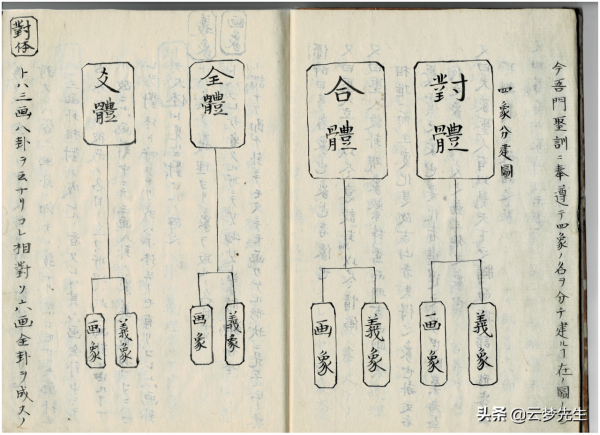 今吾門聖訓ニ奉遵テ四象ノ名ヲ分チ建ルヿ在ノ圖ノ
四象分建圖
對體
義象
画象
合體
義象
画象
全體
義象
画象
爻體
義象
画象
對体
トハ三画八卦ヲ云ナリコレ相對ソ六画全卦ヲ成スノ
头条 @云梦先生